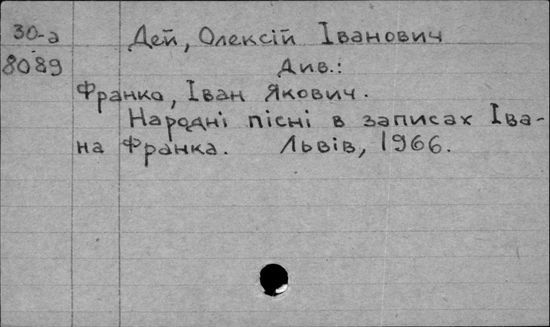 30-а Дей, Олексій Іванович
8089 Див.:
Франко, Іван Якович.
Народні пісні в записах Іва-
на Франка. Львів, 1966.